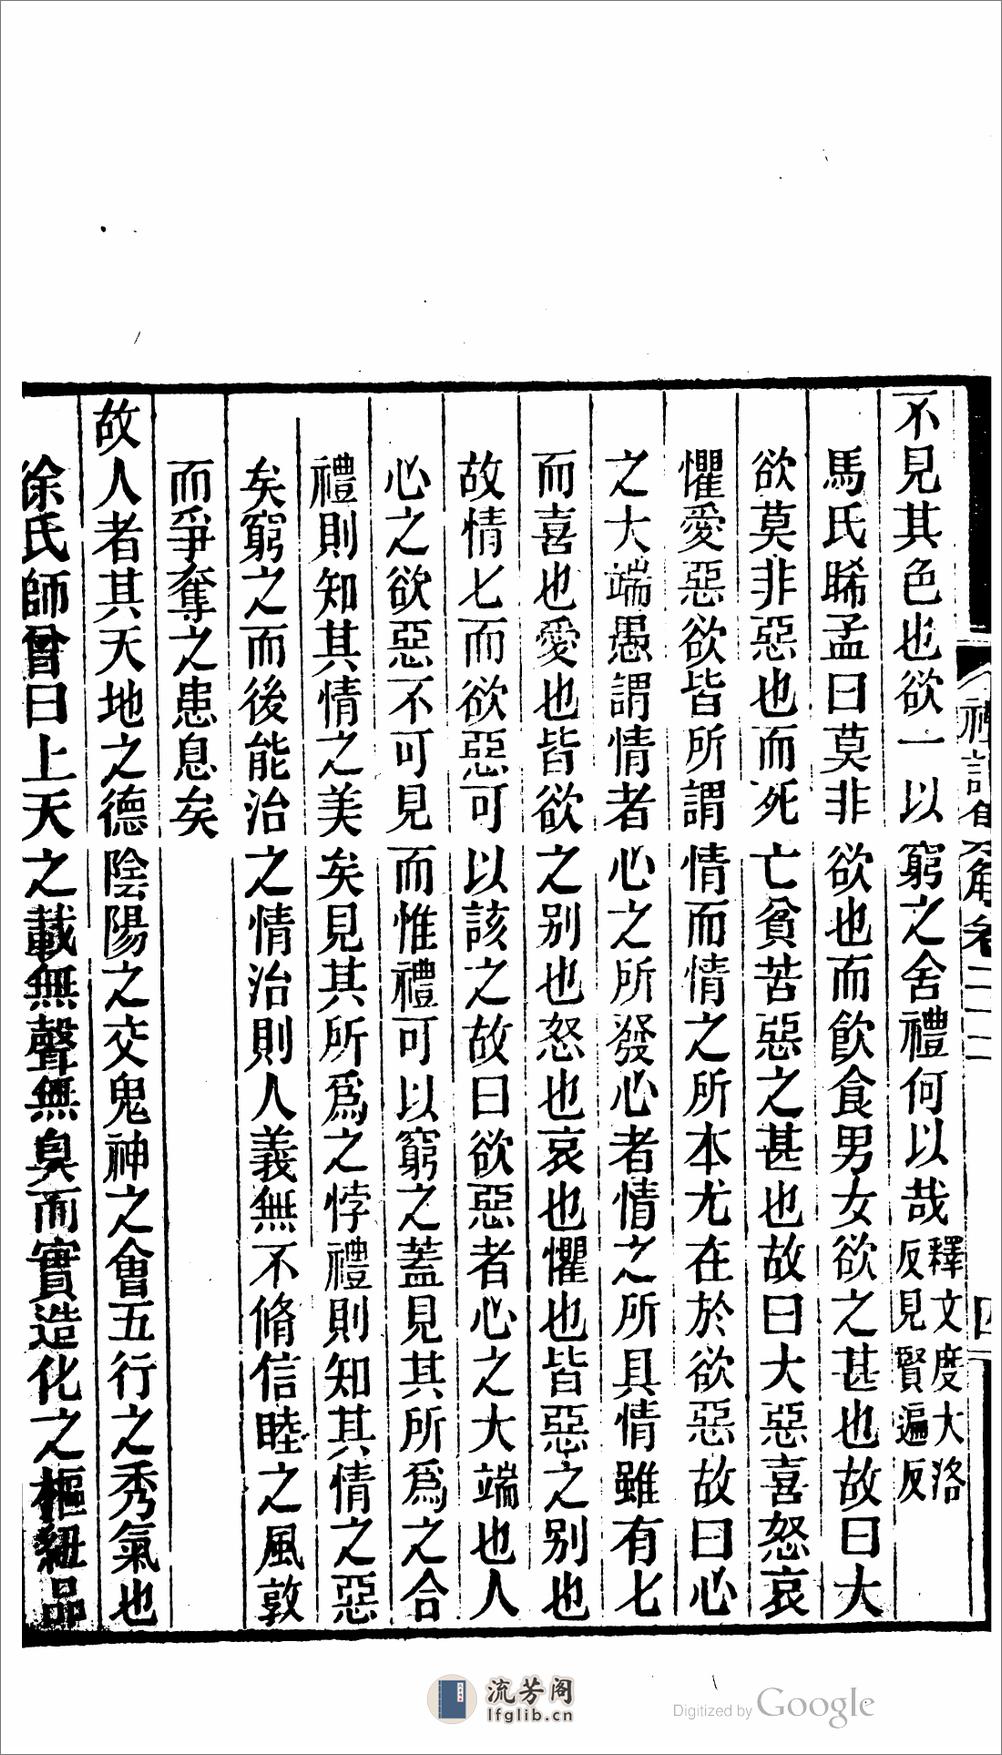 不見其色也欲一以窮之舍禮何以哉釋文度大洛反見賢遍反
馬氏晞孟曰莫非欲也而飲食男女欲之甚也故曰大
欲莫非惡也而死亡貧苦惡之甚也故曰大惡喜怒哀
懼愛惡欲皆所謂情而情之所本尤在於欲惡故曰心
之大端愚謂情者心之所發心者情之所具情雖有七
而喜也愛也皆欲之别也怒也哀也懼也皆惡之别也
故情七而欲惡可以該之故曰欲惡者心之大端也人
心之欲惡不可見而惟禮可以窮之蓋見其所爲之合
禮則知其情之美矣見其所爲之悖禮則知其情之惡
矣窮之而後能治之情治則人義無不脩信睦之風敦
而爭奪之患息矣
故人者其天地之德陰陽之交鬼神之會五行之秀氣也
徐氏師曾曰上天之載無聲無臭而實造化之樞紐品
流芳阁
lfglib.cn
Digitized by Google